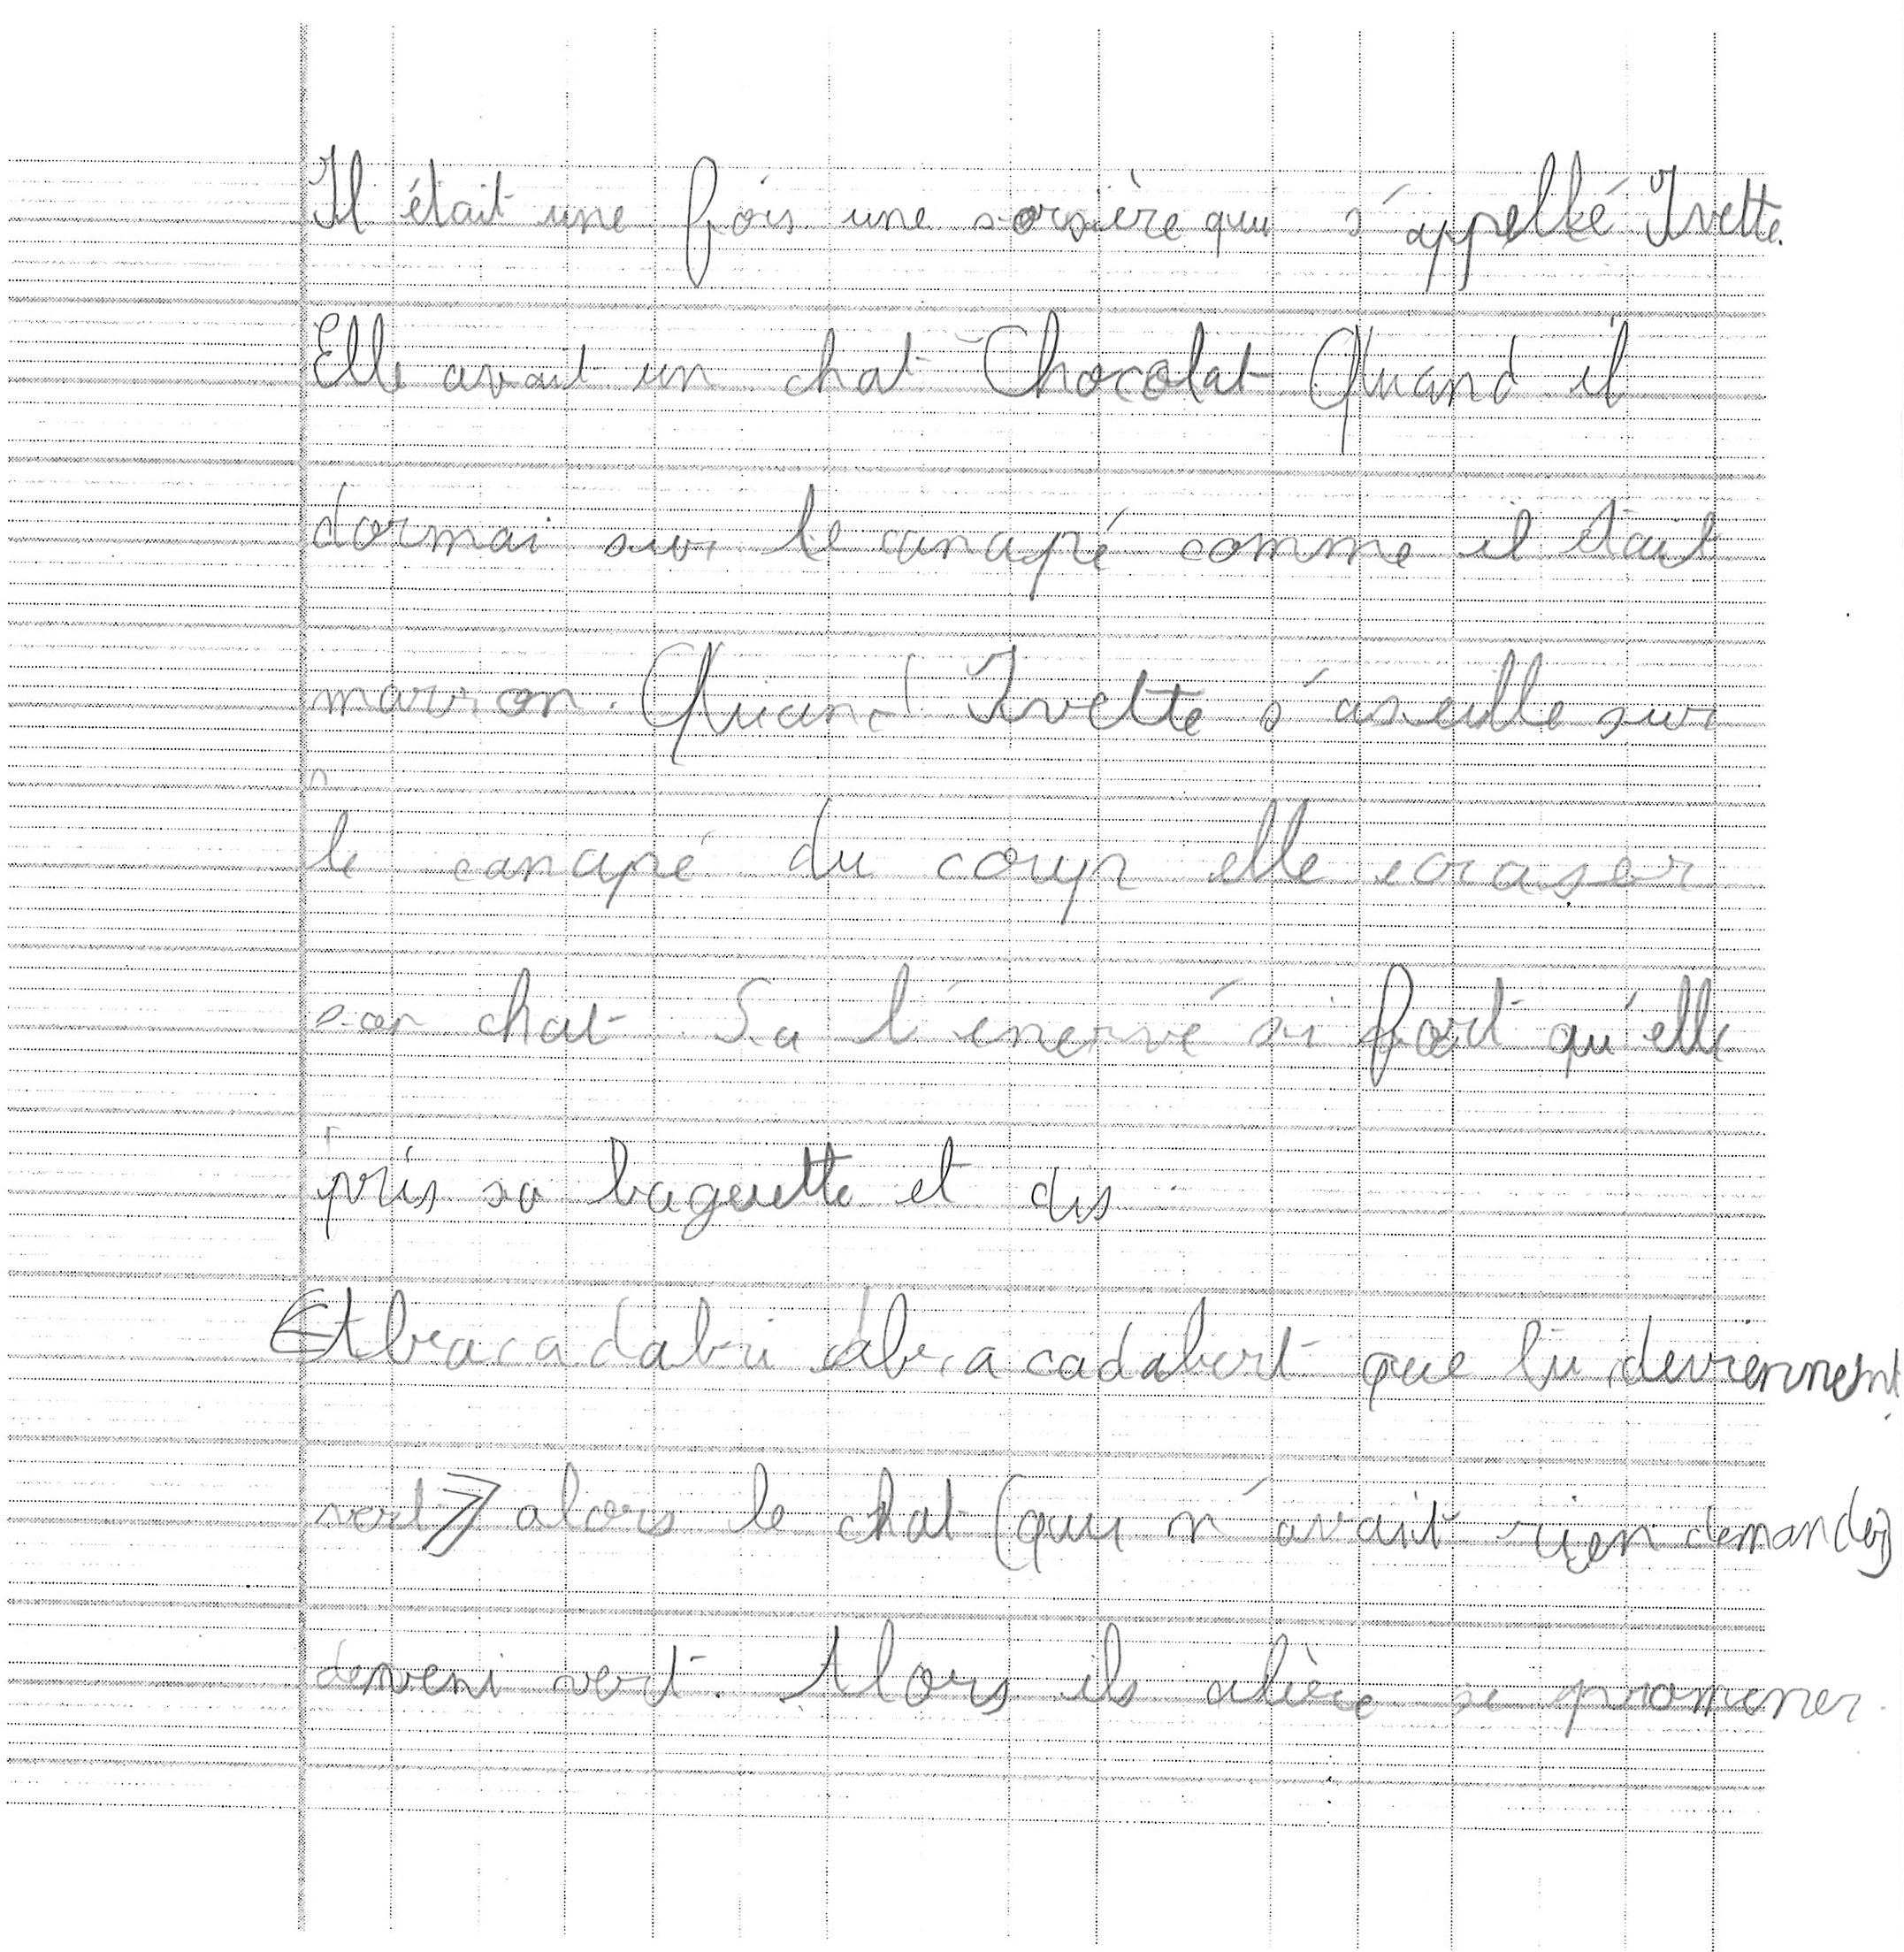 Il était une fois une sorsière qui s'appellé Ivette.
Elle avait un chat Chocolat Quand il
dormai sur le canapé comme il était
marron. Quand Ivette s'aseille sur
le canapé du coup elle écraser
son chat Sa l'énervé si fort qu'elle
pris sa baguette et dis :
«Abracadabri abracadabert que tu deviennent
vert» alors le chat (qui n'avait rien demander)
deveni vert. Alors ils alière se promener.